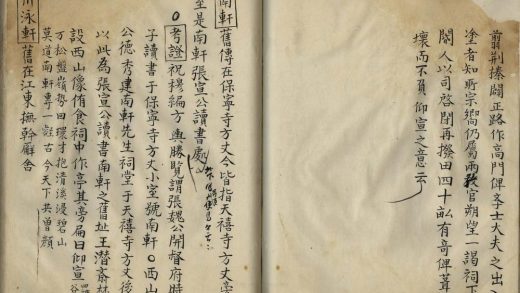 翦荆榛闢正路作高門俾文士大夫之出
塗者知所宗嚮仍屬兩教官朔望一謁祠下
閽人以司啓閉再撥田四十畝有奇俾葺
壞而不負仰宣之意云
南軒 舊傳在保寧寺方丈今皆指天禧寺方丈
室是南軒張宣公讀書處
考證祝穆編方輿勝覽謂張魏公開督府時
子讀書于保寧寺方丈小室號南軒○西山
公德秀建南軒先生祠堂于天禧寺方丈後
以此為張宣公讀書南軒之舊址王潛齋
設西山像侑食祠中作亭其旁扁曰仰宣
万松盤嶺勢回環才抱清溪漫碧山
莫道南軒專一壑古今天下共曾顏
川泳軒 舊在江東撫幹廨舍